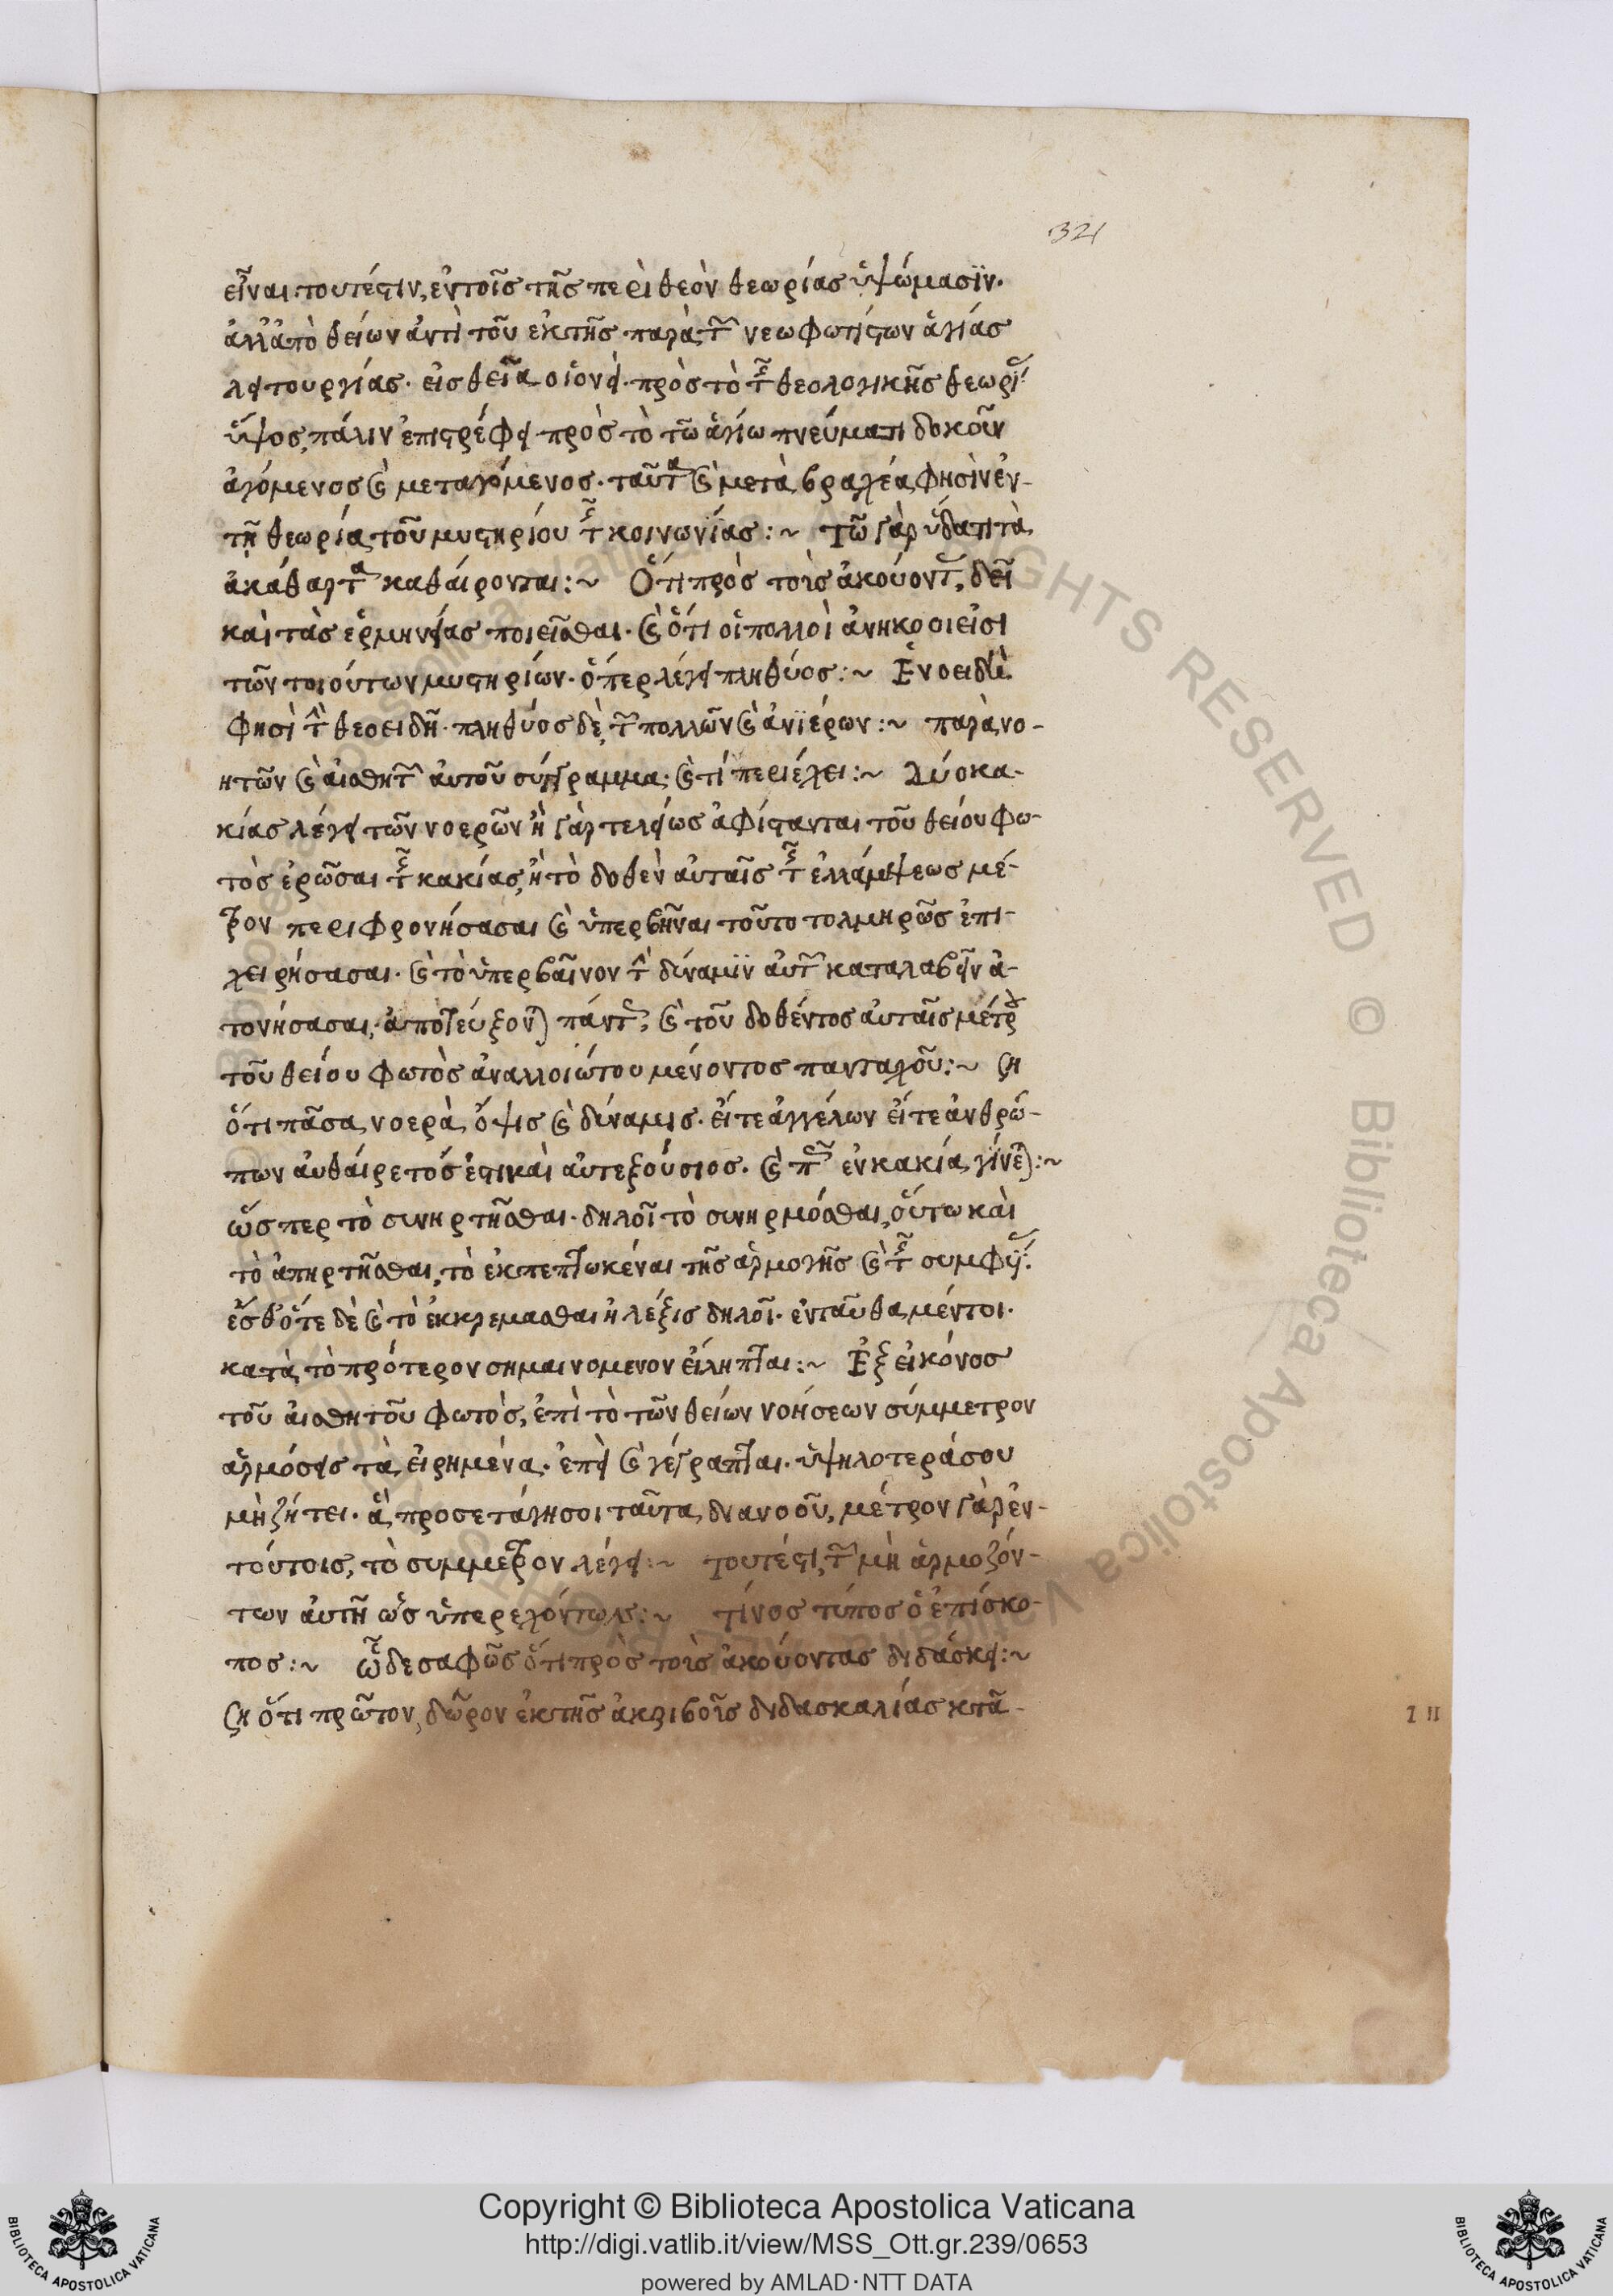 321
εἶναι τουτέστιν, ἐν τοῖς τῆς περὶ θεὸν θεωρίας ὑψώμασϊν.
ἀλλ' ἀπὸ θείων ἀντὶ τοῦ ἐκ τῆς παρὰ τῶν νεωφωτίστων ἁγίας
λειτουργίας. εἰς θεῖα οἱονεὶ πρὸς τὸ τῆς θεολογικῆς θεωρίας
ὕψος, πάλιν ἐπιστρέφει πρὸς τὸ τῶ ἁγίω πνεύματι δοκοῦν
ἀγόμενος καὶ μεταγόμενος. ταῦτα καὶ μετὰ βραχέα φησὶν ἐν-
τῇ θεωρία τοῦ μυστηρίου τῆς κοινωνίας :~ Τῶ γὰρ ὕδατι τὰ
ἀκάθαρτα καθαίρονται :~ Ὅτι πρὸς τοὺς ἀκούοντας, δεῖ
καὶ τὰς ἑρμηνείας ποιεῖσθαι. καὶ ὅτι οἱ πολλοὶ ἀνήκοοι εἰσὶ
τῶν τοιούτων μυστηρίων. ὅπερ λέγει πληθύος :~ Ἑνοειδῆ
φησὶ τὴν θεοειδῆ. πληθύος δὲ, τῶν πολλῶν καὶ ἀνϊέρων :~ παρὰ νο-
ητῶν καὶ αἰσθητῶν αὐτοῦ σύγγραμμα. καὶ τί περιέχει :~ Δύο κα-
κίας λέγει τῶν νοερῶν ἢ γὰρ τελείως ἀφίστανται τοῦ θείου φω-
τὸς ἐρῶσαι τῆς κακίας, ἢ τὸ δοθὲν αὐταῖς τῆς ἐλλάμψεως μέ-
τρον περιφρονήσασαι καὶ ὑπερβῆναι τοῦτο τολμηρῶς ἐπι-
χειρήσασαι. καὶ τὸ ὑπερβαῖνον τὴν δύναμϊν αὐτῶν καταλαβεῖν ἀ-
τονήσασαι, ἀποτεύξονται πάντως καὶ τοῦ δοθέντος αὐταῖς μέτρου
τοῦ θείου φωτὸς ἀναλλοιώτου μένοντος πανταχοῦ :~ ση
ὅτι πᾶσα νοερὰ ὄψις καὶ δύναμις. εἴτε ἀγγέλων εἴτε ἀνθρώ-
πων αὐθαίρετός ἐστι καὶ αὐτεξούσιος. καὶ πῶς ἐν κακία γίνεται :~
ὥσπερ τὸ συνηρτῆσθαι. δηλοῖ τὸ συνηρμόσθαι, οὕτω καὶ
τὸ ἀπηρτῆσθαι, τὸ ἐκπεπτωκέναι τῆς ἁρμογῆς καὶ τῆς συμφυΐας.
ἔσθ' ὅτε δὲ καὶ τὸ ἐκκρεμασθαι ἡ λέξις δηλοῖ. ἐνταῦθα μέντοι.
κατὰ τὸ πρότερον σημαινομενον εἴληπται :~ Ἐξ εἰκόνος
τοῦ αἰσθητοῦ φωτὸς, ἐπὶ τὸ τῶν θείων νοήσεων σύμμετρον
ἁρμόσεις τὰ εἰρημένα. ἐπεὶ καὶ γέγραπται. ὑψηλοτερά σου
μὴ ζήτει. ἃ προσετάγη σοι ταῦτα διανοοῦ, μέτρον γὰρ ἐν-
τούτοις, τὸ συμμετρον λέγει :~ τουτέστι, τῶν μὴ ἁρμοζόν-
των αὐτῆ ὡς ὑπερεχόντων :~ τίνος τύπος ὁ ἐπίσκο-
πος :~ ὧδε σαφῶς ὅτι πρὸς τοὺς ἀκούοντας διδάσκει :~
ση ὅτι πρῶτον δῶρον ἐκ τῆς ἀκριβοῦς διδασκαλίας κτᾶ-
Copyright © Biblioteca Apostolica Vaticana
http://digi.vatlib.it/view/MSS_Ott.gr.239/0653
powered by AMLAD·NTT DATA